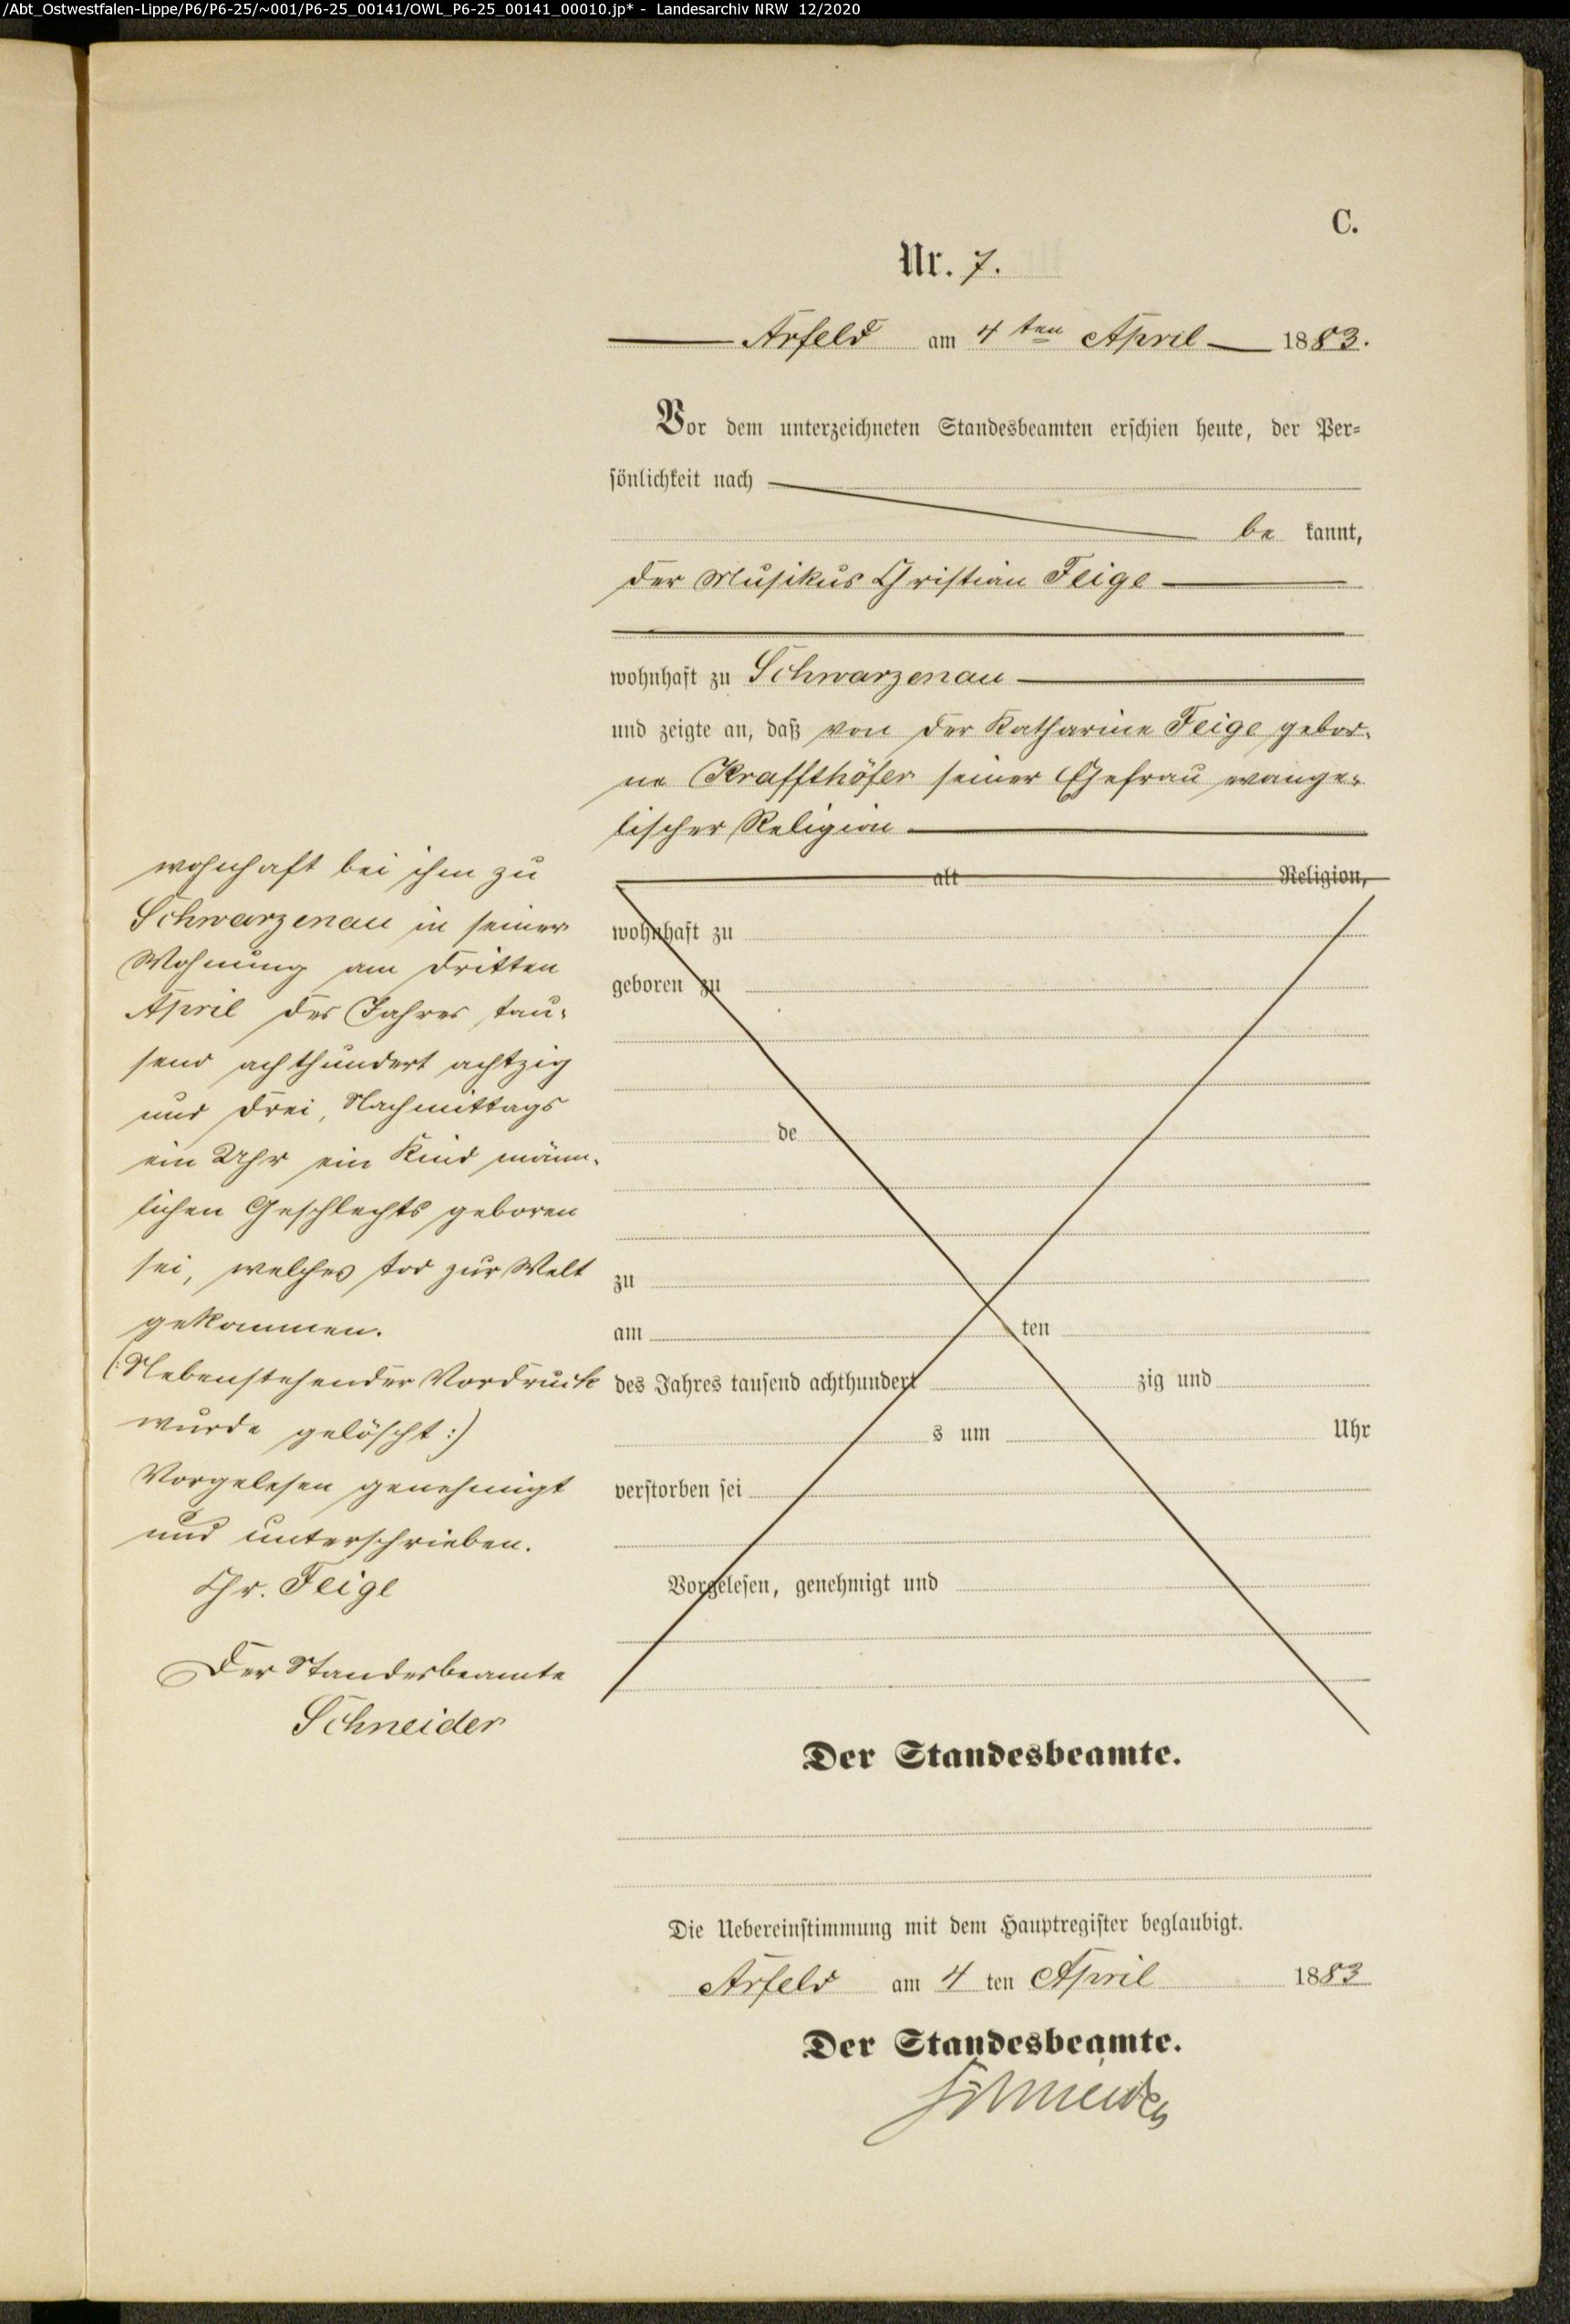 /Abt_Ostwestfalen-Lippe/P6/P6-25/~001/P6-25_00141/OWL_P6-25_00141_00010.jp* - Landesarchiv NRW 12/2020
C.
Nr. 7.
Arfeld am 4ten April 1883.
Vor dem unterzeichneten Standesbeamten erschien heute, der Per=
sönlichkeit nach
be kannt,
der Musikus Christian Feige
wohnhaft zu Schwarzenau
und zeigte an, daß von der Katharine Feige gebor-
ne Kraffthöfer seiner Ehefrau evange-
lischer Religion
alt Religion,
wohnhaft zu
geboren zu
de
zu
am ten
des Jahres tausend achthundert zig und
s um Uhr
verstorben sei
Vorgelesen, genehmigt und
wohnhaft bei ihm zu
Schwarzenau in seiner
Wohnung am dritten
April des Jahres tau-
send achthundert achtzig
und drei, Nachmittags
ein Uhr ein Kind männ-
lichen Geschlechts geboren
sei, welches tod zur Welt
gekommen.
(: Nebenstehender Vordruck
wurde gelöscht :)
Vorgelesen genehmigt
und unterschrieben.
Chr. Feige
Der Standesbeamte
Schneider
Der Standesbeamte.
Die Uebereinstimmung mit dem Hauptregister beglaubigt.
Arfeld am 4 ten April 1883
Der Standesbeamte.
Schneider